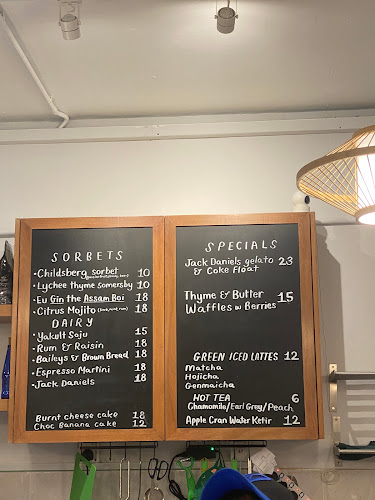 SORBETS
• Childsberg sorbet 10
• Lychee thyme Somersby 10
• Eu Gin the Assam Boi 18
• Citrus Mojito (lime, mint, rum) 18
DAIRY
• Yakult Soju 15
• Rum & Raisin 18
• Baileys & Brown Bread 18
• Espresso Martini 18
• Jack Daniels 18
Burnt cheese cake 18
Choc Banana cake 12
SPECIALS
Jack Daniels gelato 23
& Coke Float
Thyme & Butter 15
Waffles w Berries
GREEN ICED LATTES 12
Matcha
Hojicha
Genmaicha
HOT TEA 6
Chamomile/Earl Grey/Peach
Apple Cran Water Kefir 12